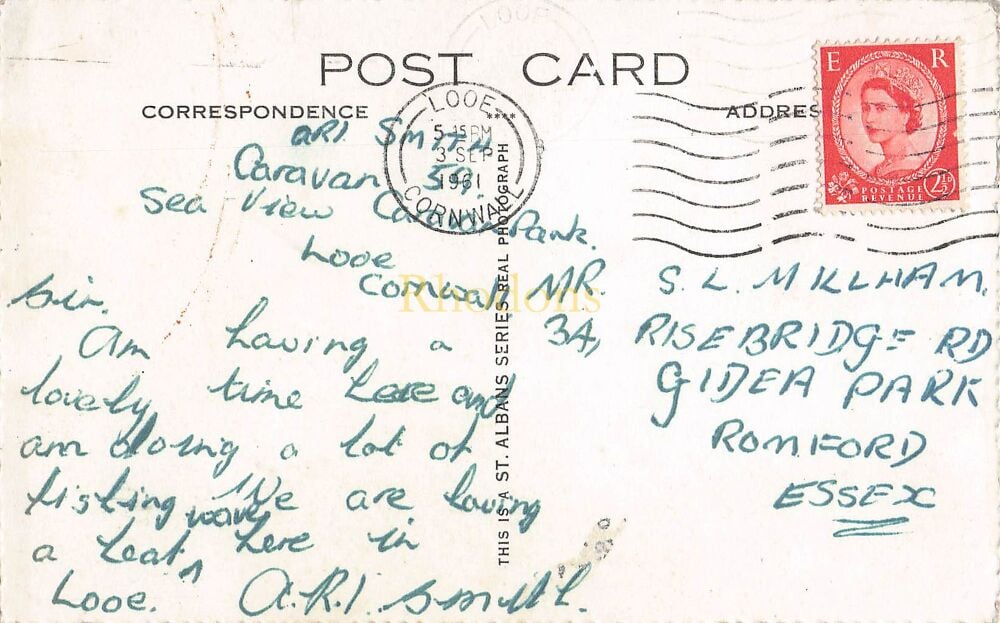 LOOE
POST CARD
CORRESPONDENCE
ADDRES
LOOE
5-15PM
3 SEP
1961
CORNWALL
E R
POSTAGE
REVENUE
2½D
ARI Smith
Caravan
Sea View Caravan Park.
Looe
Cornwall
Sir.
Am having a
lovely time here and
am doing a lot of
fishing. We are having
a heat ^ wave here in
Looe. A.R.I. Smith.
MR. S. L. MILLHAM.
34, RISEBRIDGE RD
GIDEA PARK
ROMFORD
ESSEX
THIS IS A ST. ALBANS SERIES REAL PHOTOGRAPH
Rhodons